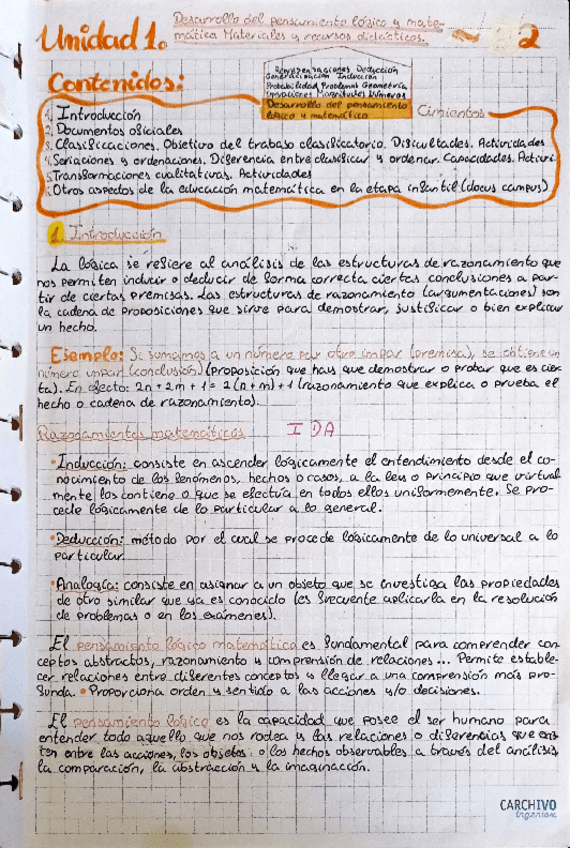 Desarrollo del pensamiento lógico y mate-
Unidad 1. mática Materiales y recursos didácticos. 2
Contenidos:
Representaciones Deducción
Generalización Inducción
Probabilidad Problemas Geometría
Operaciones Magnitudes Números
Desarrollo del pensamiento
lógico y matemático
Cimientos
1. Introducción
2. Documentos oficiales
3. Clasificaciones. Objetivo del trabajo clasificatorio. Dificultades. Actividades
4. Seriaciones y ordenaciones. Diferencia entre clasificar y ordenar. Capacidades. Activi.
5. Transformaciones cualitativas. Actividades
Otros aspectos de la educación matemática en la etapa infantil (docus campus)
1. Introducción
La lógica se refiere al análisis de las estructuras de razonamiento que
nos permiten inducir o deducir de forma correcta ciertas conclusiones a par-
tir de ciertas premisas. Las estructuras de razonamiento (argumentaciones) son
la cadena de proposiciones que sirve para demostrar, justificar o bien explicar
un hecho.
Ejemplo: Si sumamos a un número par otro impar (premisa), se obtiene un
número impar (conclusión) (proposición que hay que demostrar o probar que es cier-
ta). En efecto: 2n + 2m + 1 = 2(n+m) + 1 (razonamiento que explica o prueba el
hecho o cadena de razonamiento).
Razonamientos matemáticos I DA
• Inducción: consiste en ascender lógicamente el entendimiento desde el co-
nocimiento de los fenómenos, hechos o casos, a la ley o principio que virtual
mente los contiene o que se efectúa en todos ellos uniformemente. Se pro-
cede lógicamente de lo particular a lo general.
• Deducción: método por el cual se procede lógicamente de lo universal a lo
particular.
• Analogía: consiste en asignar a un objeto que se investiga las propiedades
de otro similar que ya es conocido (es frecuente aplicarla en la resolución
de problemas o en los exámenes).
El pensamiento lógico matemático es fundamental para comprender con
ceptos abstractos, razonamiento y comprensión de relaciones... Permite estable-
cer relaciones entre diferentes conceptos y llegar a una comprensión más pro-
funda. • Proporciona orden y sentido a las acciones y/o decisiones.
El pensamiento lógico es la capacidad que posee el ser humano para
entender todo aquello que nos rodea y las relaciones o diferencias que exis
ten entre las acciones, los objetos o los hechos observables a través del análisis,
la comparación, la abstracción y la imaginación.
CARCHIVO